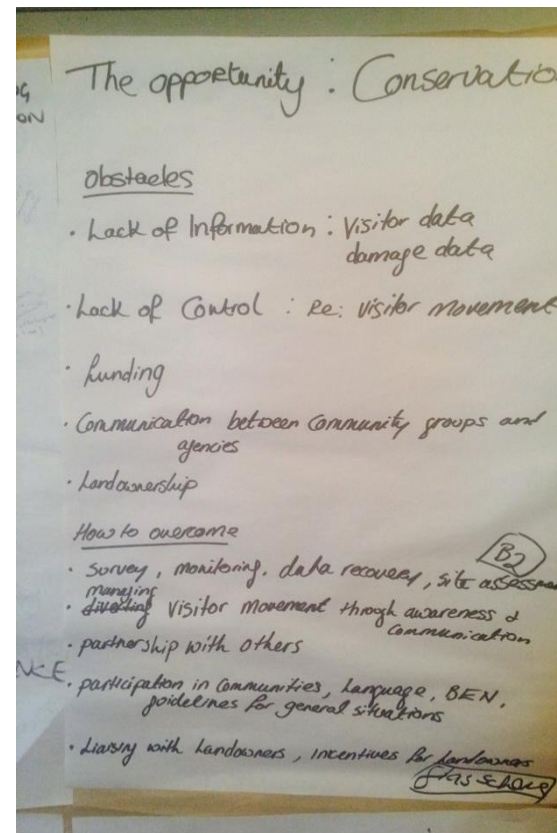 The opportunity : Conservatio
Obstacles
• Lack of Information : Visitor data
damage data
• Lack of Control : Re: visitor movement
• Funding
• Communication between Community groups and
agencies
• Landownership
How to overcome
B2
• Survey, monitoring, data recovery, site assessmen
managing
• diverting visitor movement through awareness &
communication
• partnership with others
• participation in Communities, Language, BEN,
guidelines for general situations
• Liaising with Landowners, incentives for Landowners
ON
NCE